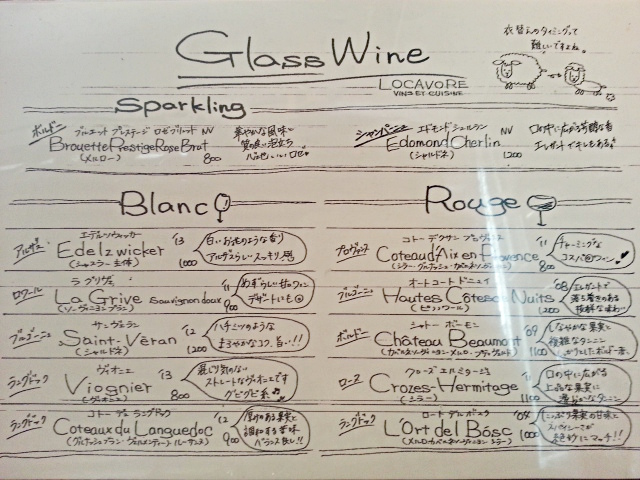 Glass Wine
LOCAVORE
VINS ET CUISINE
衣替えのタイミングって
難しいですよね。
Sparkling
ボルドー ブルエット プレステージ ロゼブリュット NV
Brouette Prestige Rose Brut 800
(メルロー)
華やかな風味
シャンパーニュ エドモンドシェルラン NV
Edomond Cherlin 1200
(シャルドネ)
口の中に広がる
Blanc
アルザス エデルツヴィッカー '13
Edelzwicker 1000
(シャスラー主体)
白いお花のような香り
アルザスらしいスッキリ感
ロワール ラ グリヴ '11
La Grive sauvignon doux 900
(ソーヴィニヨンブラン)
めずらしい甘口ワイン
デザートにも
ブルゴーニュ サンヴェラン '12
Saint-Véran 1200
(シャルドネ)
ハチミツのような
まろやかなコク、旨い!!
ラングドック ヴィオニエ '13
Viognier 800
(ヴィオニエ)
混じり気のない
ストレートなヴィオニエです
グビグビ系
ラングドック コトー デュ ラングドック '12
Coteaux du Languedoc 900
(グルナッシュブラン・ヴェルメンティーノ・ルーサンヌ)
厚みある果実と
調和する苦味
バランス良し!!
Rouge
プロヴァンス コトー デクサン プロヴァンス '11
Coteau d'Aix en Provence 800
チャーミングな
コスパ◎ワイン
ブルゴーニュ オートコート ドニュイ '08
Hautes Côtes Nuits 1200
(ピノ・ノワール)
エレガントで
落ち着きのある
ボルドー シャトー ボーモン '09
Château Beaumont 1100
しなやかな果実と
複雑なタンニン
ローヌ クローズ エルミタージュ '11
Crozes-Hermitage 1100
(シラー)
口の中に広がる
上品な果実に
ラングドック ロート デル ボスク '04
L'Ort del Bósc 1000
(メルロ・カベルネソーヴィニヨン・シラー)
こっぷり果実の甘味と
スパイシーさが
絶妙にマッチ!!